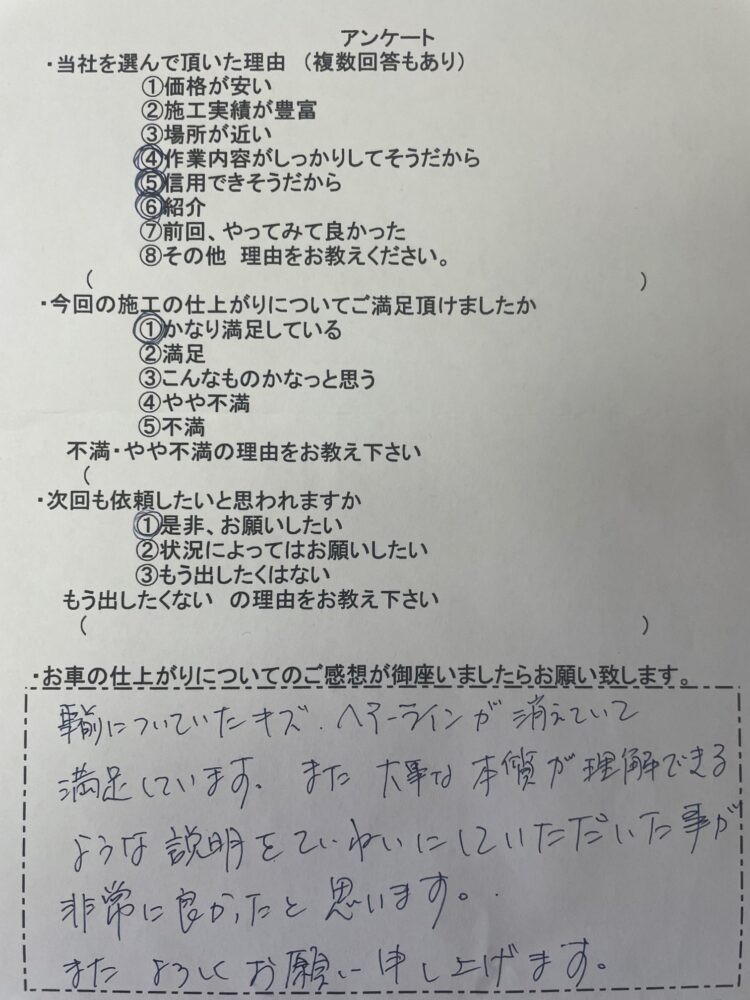 アンケート
・当社を選んで頂いた理由　（複数回答もあり）
①価格が安い
②施工実績が豊富
③場所が近い
④作業内容がしっかりしてそうだから
⑤信用できそうだから
⑥紹介
⑦前回、やってみて良かった
⑧その他　理由をお教えください。
（　　　　　　　　　　）
・今回の施工の仕上がりについてご満足頂けましたか
①かなり満足している
②満足
③こんなものかなっと思う
④やや不満
⑤不満
不満・やや不満の理由をお教え下さい
（
・次回も依頼したいと思われますか
①是非、お願いしたい
②状況によってはお願いしたい
③もう出したくはない
もう出したくない　の理由をお教え下さい
（　　　　　　　　　　）
・お車の仕上がりについてのご感想が御座いましたらお願い致します。
についていたキズ、ヘアーラインが消えていて
満足しています。また大事な本質が理解できる
ような説明をていねいにしていただいた事が
非常に良かったと思います。
またよろしくお願い申し上げます。